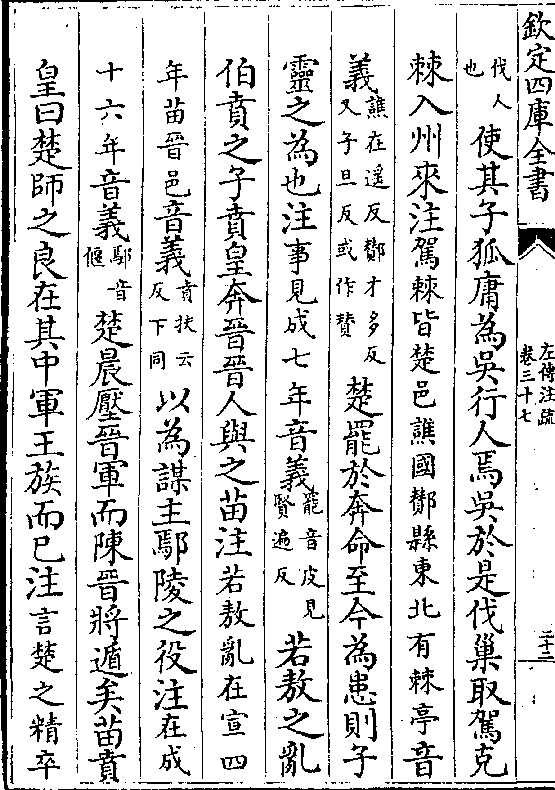 欽定四庫全書
左傳注疏
卷三十七
二十二
伐人
也
使其子狐庸為吳行人焉吳於是伐巢取駕克
棘入州來注駕棘皆楚邑譙國酇縣東北有棘亭音
義
譙在遥反酇才多反
又子旦反或作賛
楚罷於奔命至今為患則子
靈之為也注事見成七年音義
罷音皮見
賢遍反
若敖之亂
伯賁之子賁皇奔晉晉人與之苗注若敖亂在宣四
年苗晉邑音義
賁扶云
反下同
以為謀主鄢陵之役注在成
十六年音義
鄢音
偃
楚晨壓晉軍而陳晉將遁矣苗賁
皇曰楚師之良在其中軍王族而已注言楚之精卒